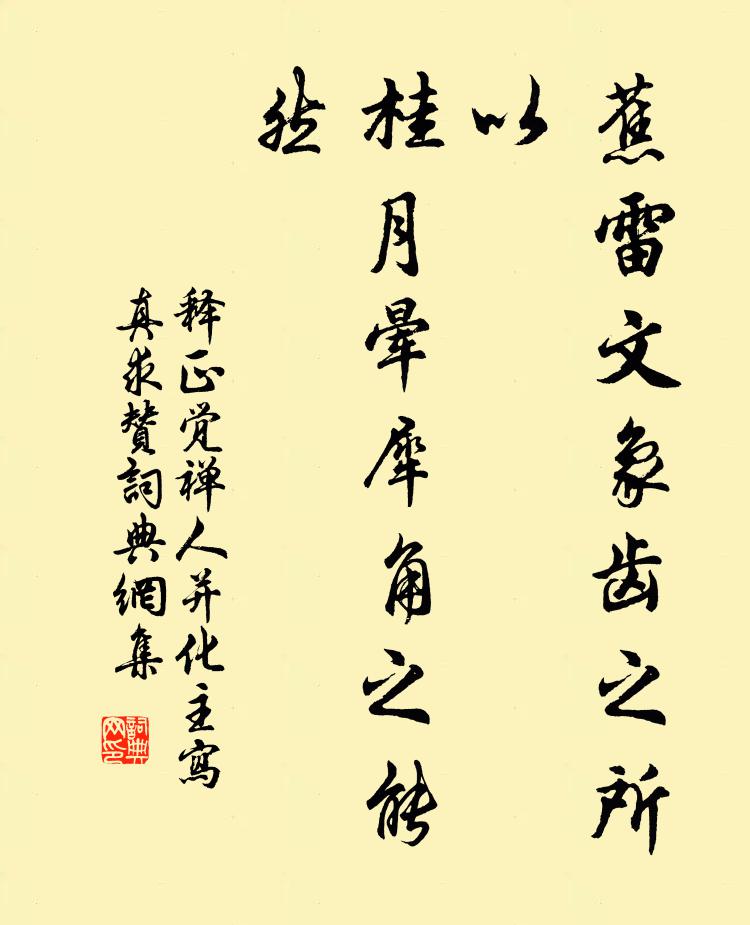 蕉雷文象齿之所
以
桂月晕犀角之能
然
释正觉禅人并化主写
真求赞詞典網集
詞典
网印